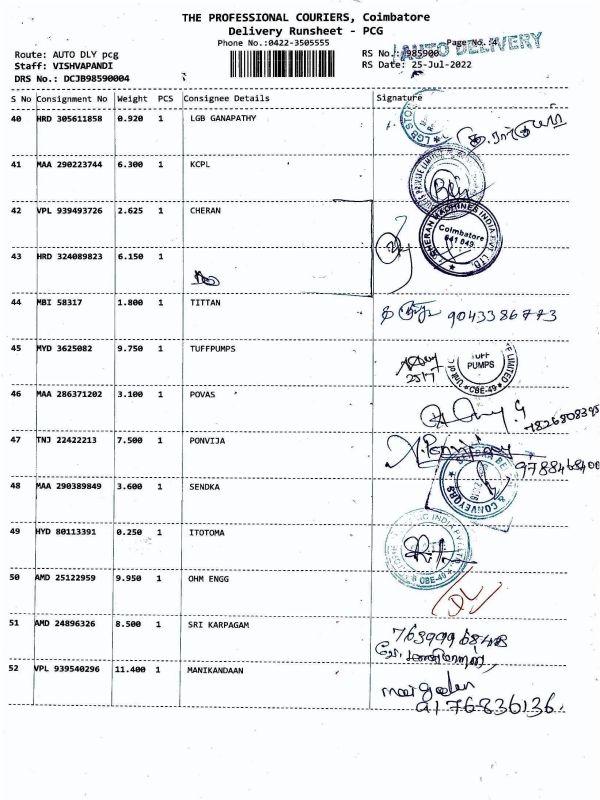 THE PROFESSIONAL COURIERS, Coimbatore
Delivery Runsheet - PCG
Phone No.:0422-3505555
Page No. 4
AUTO DELIVERY
Route: AUTO DLY pcg
RS No.: 985900
Staff: VISHVAPANDI
RS Date: 25-Jul-2022
DRS No.: DCJB98590004
S No Consignment No Weight PCS Consignee Details Signature
40 HRD 305611858 0.920 1 LGB GANAPATHY
41 MAA 290223744 6.300 1 KCPL
42 VPL 939493726 2.625 1 CHERAN
CHERAN MACHINES INDIA PVT LTD.
Coimbatore
641 049
43 HRD 324089823 6.150 1
44 MBI 58317 1.800 1 TITTAN
9043386773
45 MYD 3625082 9.750 1 TUFFPUMPS
TUFF
PUMPS
LIMITED
CBE-49
46 MAA 286371202 3.100 1 POVAS
47 TNJ 22422213 7.500 1 PONVIJA
48 MAA 290389849 3.600 1 SENDKA
CONVEYORS
49 HYD 80113391 0.250 1 ITOTOMA
INDIA PVT LTD
CBE-49
50 AMD 25122959 9.950 1 OHM ENGG
DL
51 AMD 24896326 8.500 1 SRI KARPAGAM
52 VPL 939540296 11.400 1 MANIKANDAAN